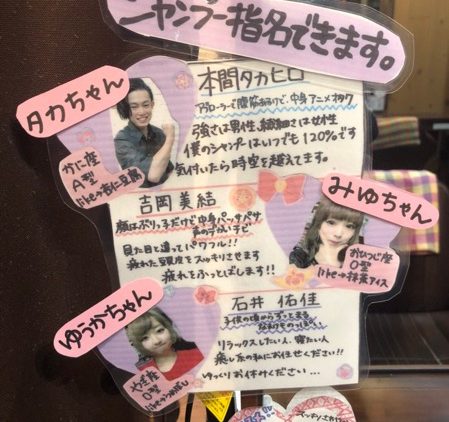 シャンプー指名できます。
タカちゃん
本間タカヒロ
アブローラーで腹筋割るけど、中身アニメオタク
強さは男性、繊細さは女性
僕のシャンプーはいつでも120%です
気付いたら時空を超えてます。
かに座
A型
like→杏仁豆腐
吉岡美結
顔はぶりっ子だけど中身パッサパサ
声のデカいチビ
見た目と違ってパワフル!!
疲れた頭皮をスッキリさせます
疲れをふっとばします!!
みゆちゃん
おひつじ座
O型
like→抹茶アイス
ゆうかちゃん
石井 佑佳
子供の頃からずっとまる
リラックスしたい人、寝たい人
癒し系の私にお任せください!!
ゆっくりお休けください…
やぎ座
O型